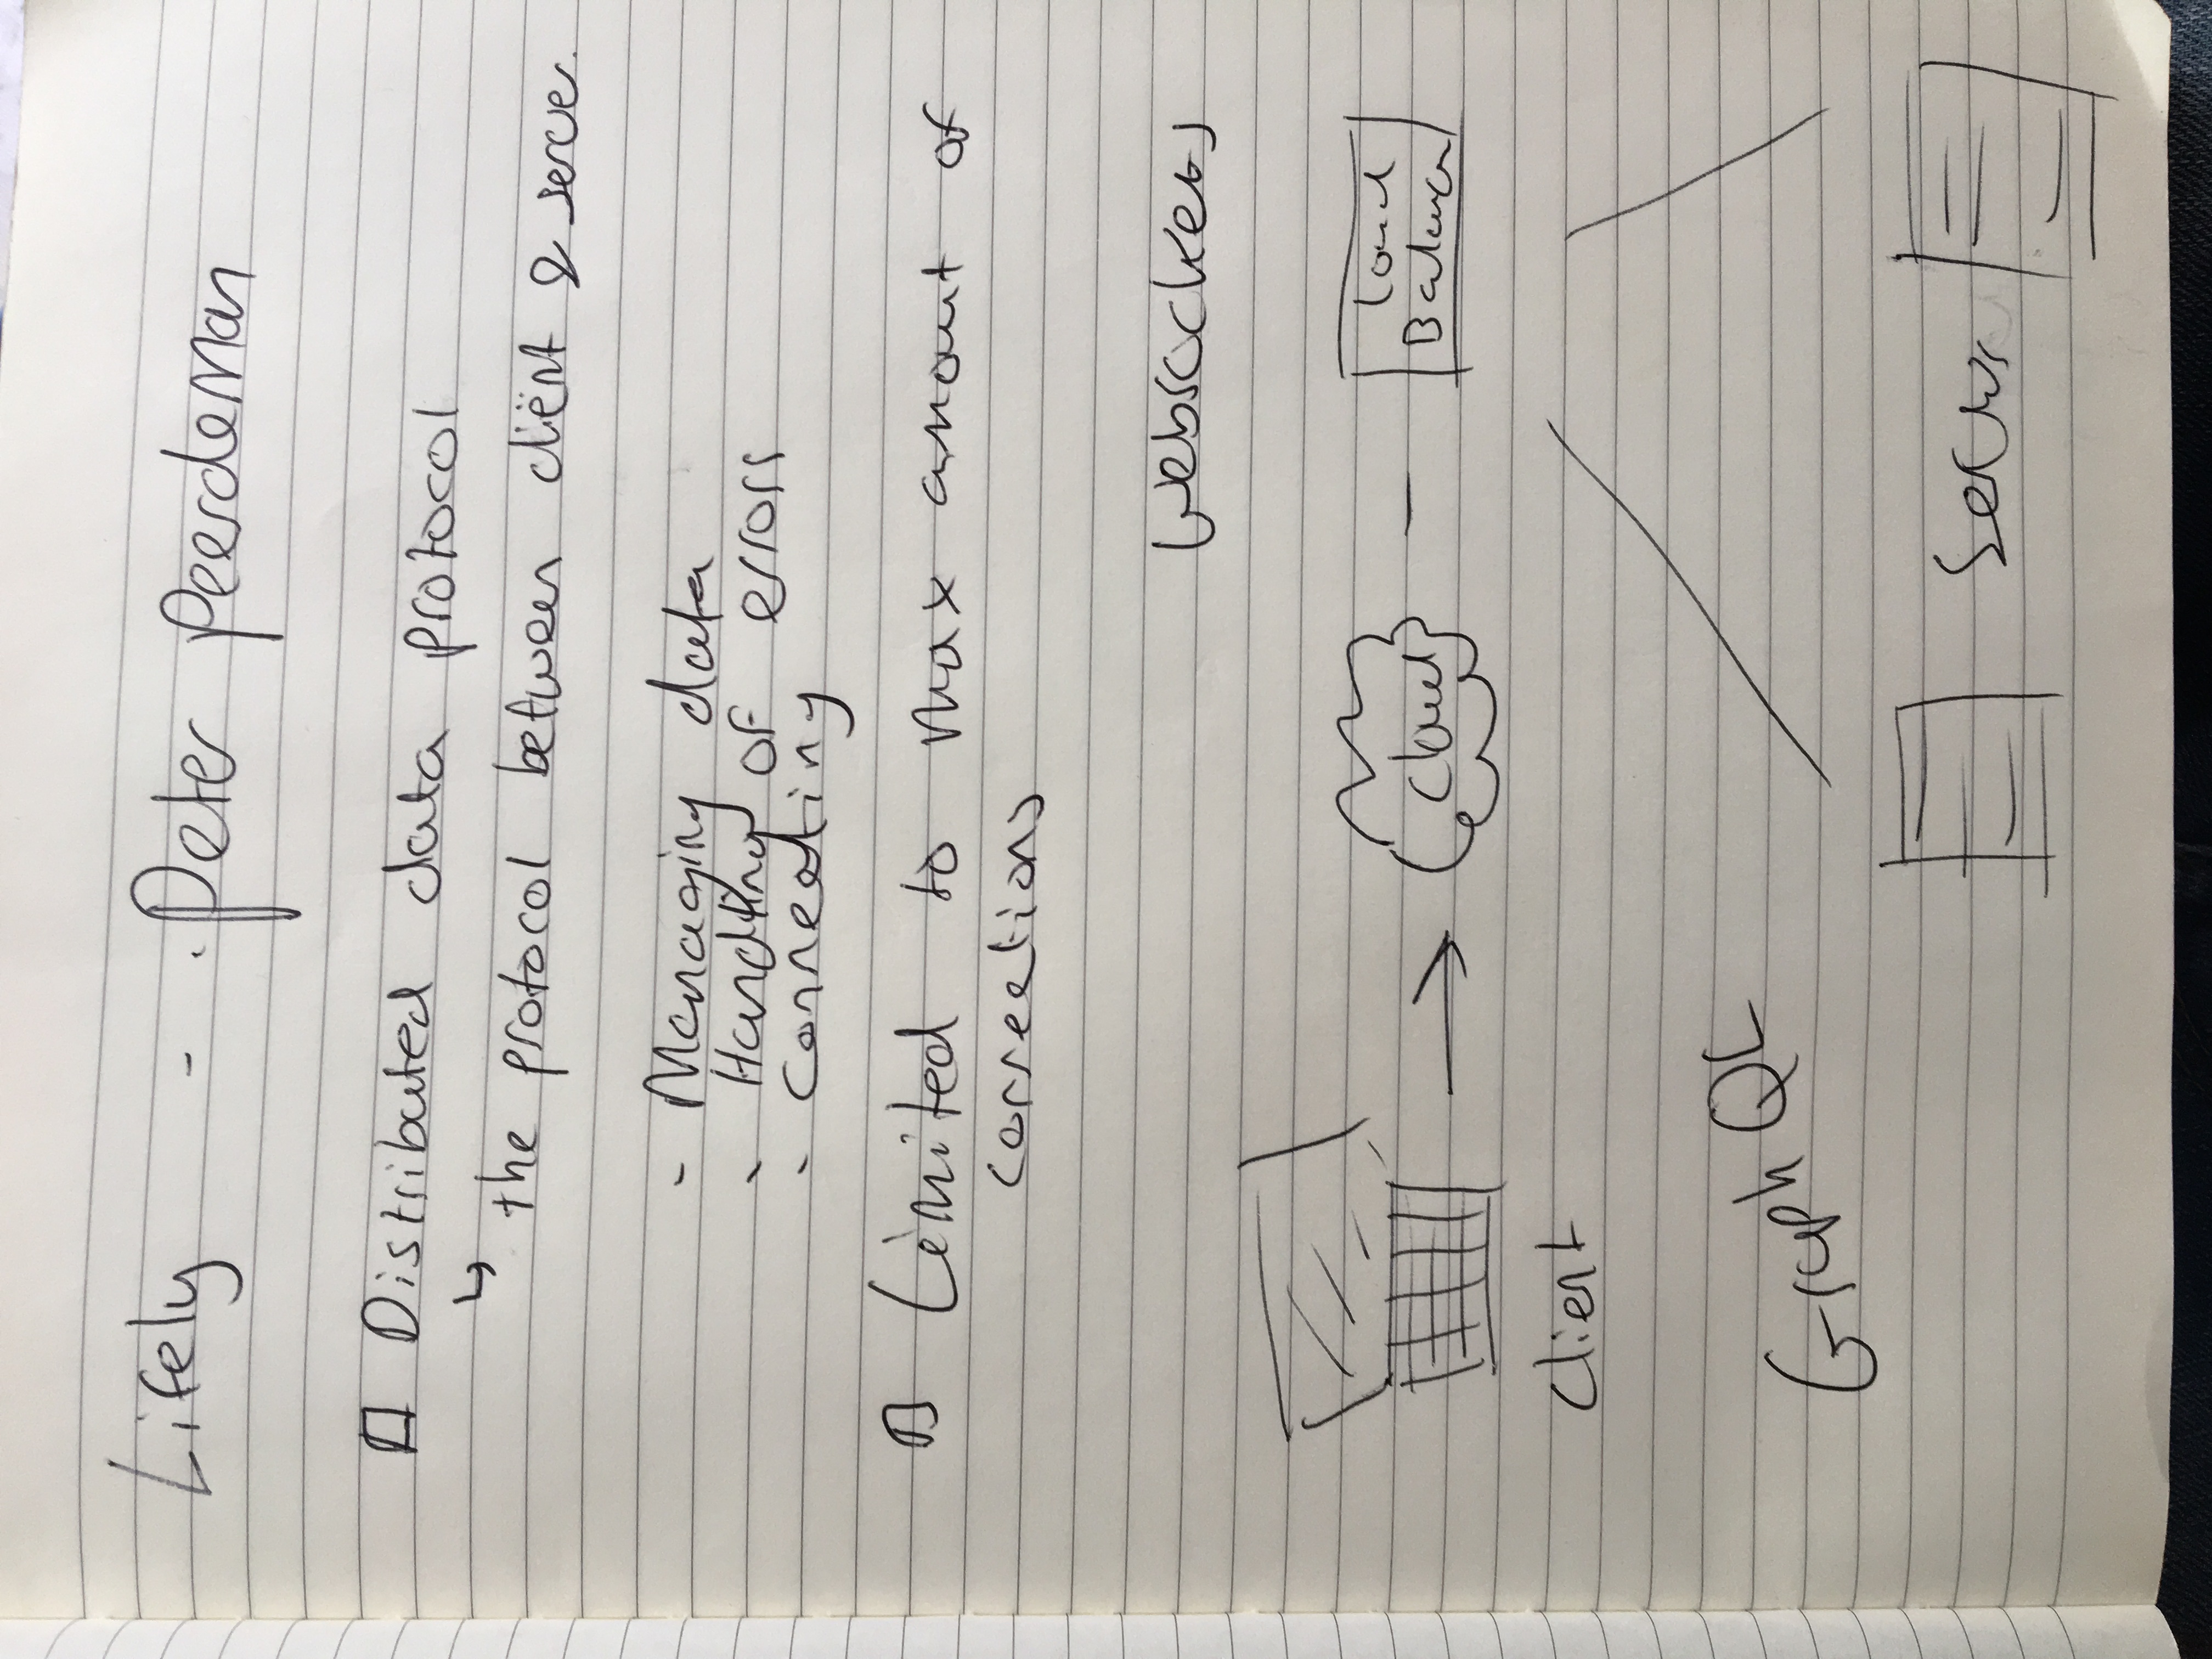 Lifely - Peter Peerdeman
Distributed data protocol
↳ the protocol between cliënt & server.
- Managing data
- Handling of errors
- Connecting
Limited to max amount of
connections
Websockets
cloud
Load
Balancer
Client
GraphQL
Servers